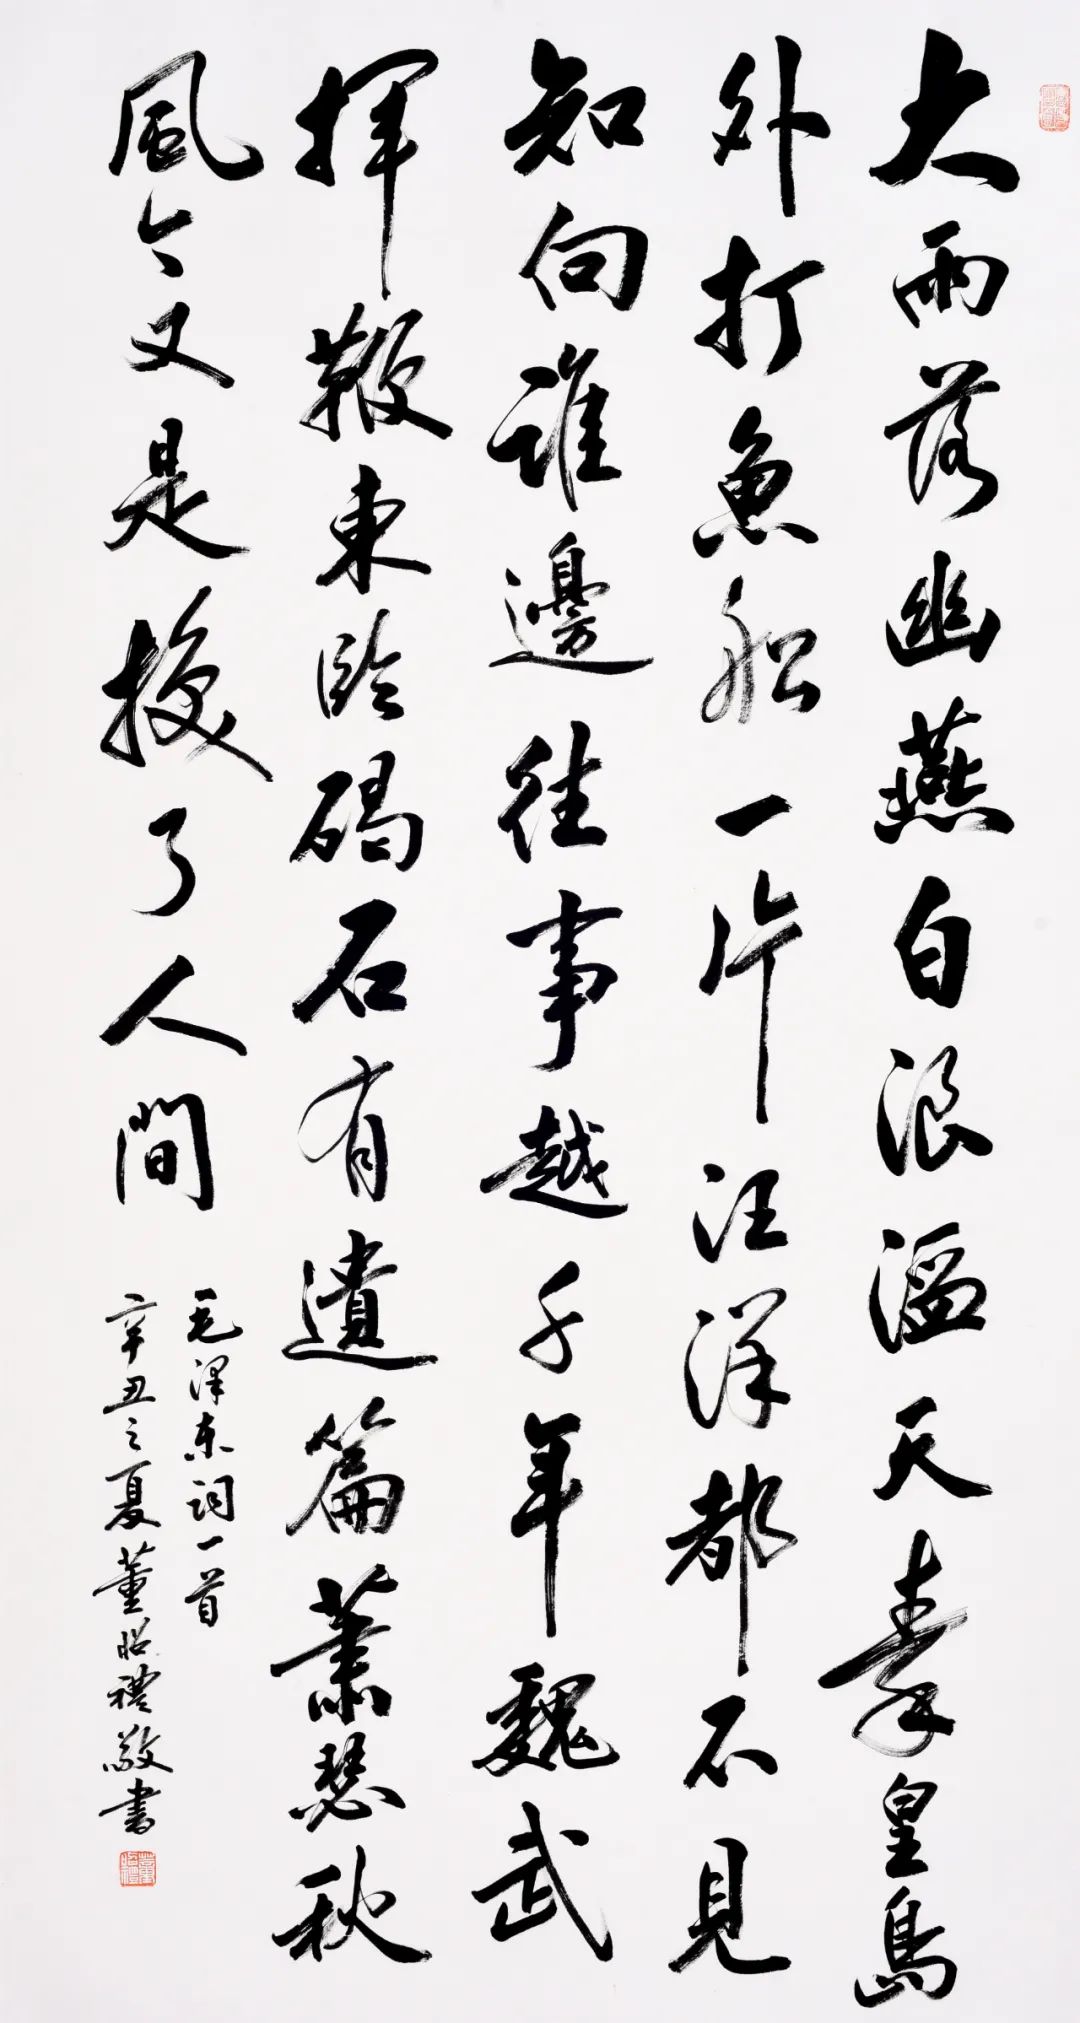 大雨落幽燕白浪滔天秦皇島
外打魚船一片汪洋都不見
知向誰邊往事越千年魏武
揮鞭東臨碣石有遺篇蕭瑟秋
風今又是換了人間
毛澤东詞一首
辛丑之夏董昭禮敬書